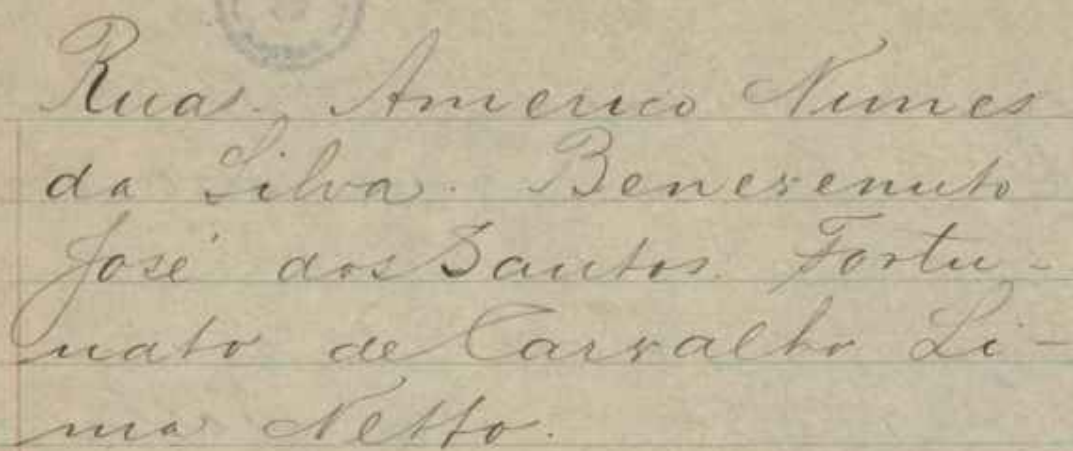 Ruas. Americo Nunes
da Silva. Benevenuto
José dos Santos. Fortu-
nato de Carvalho Li-
ma Netto.